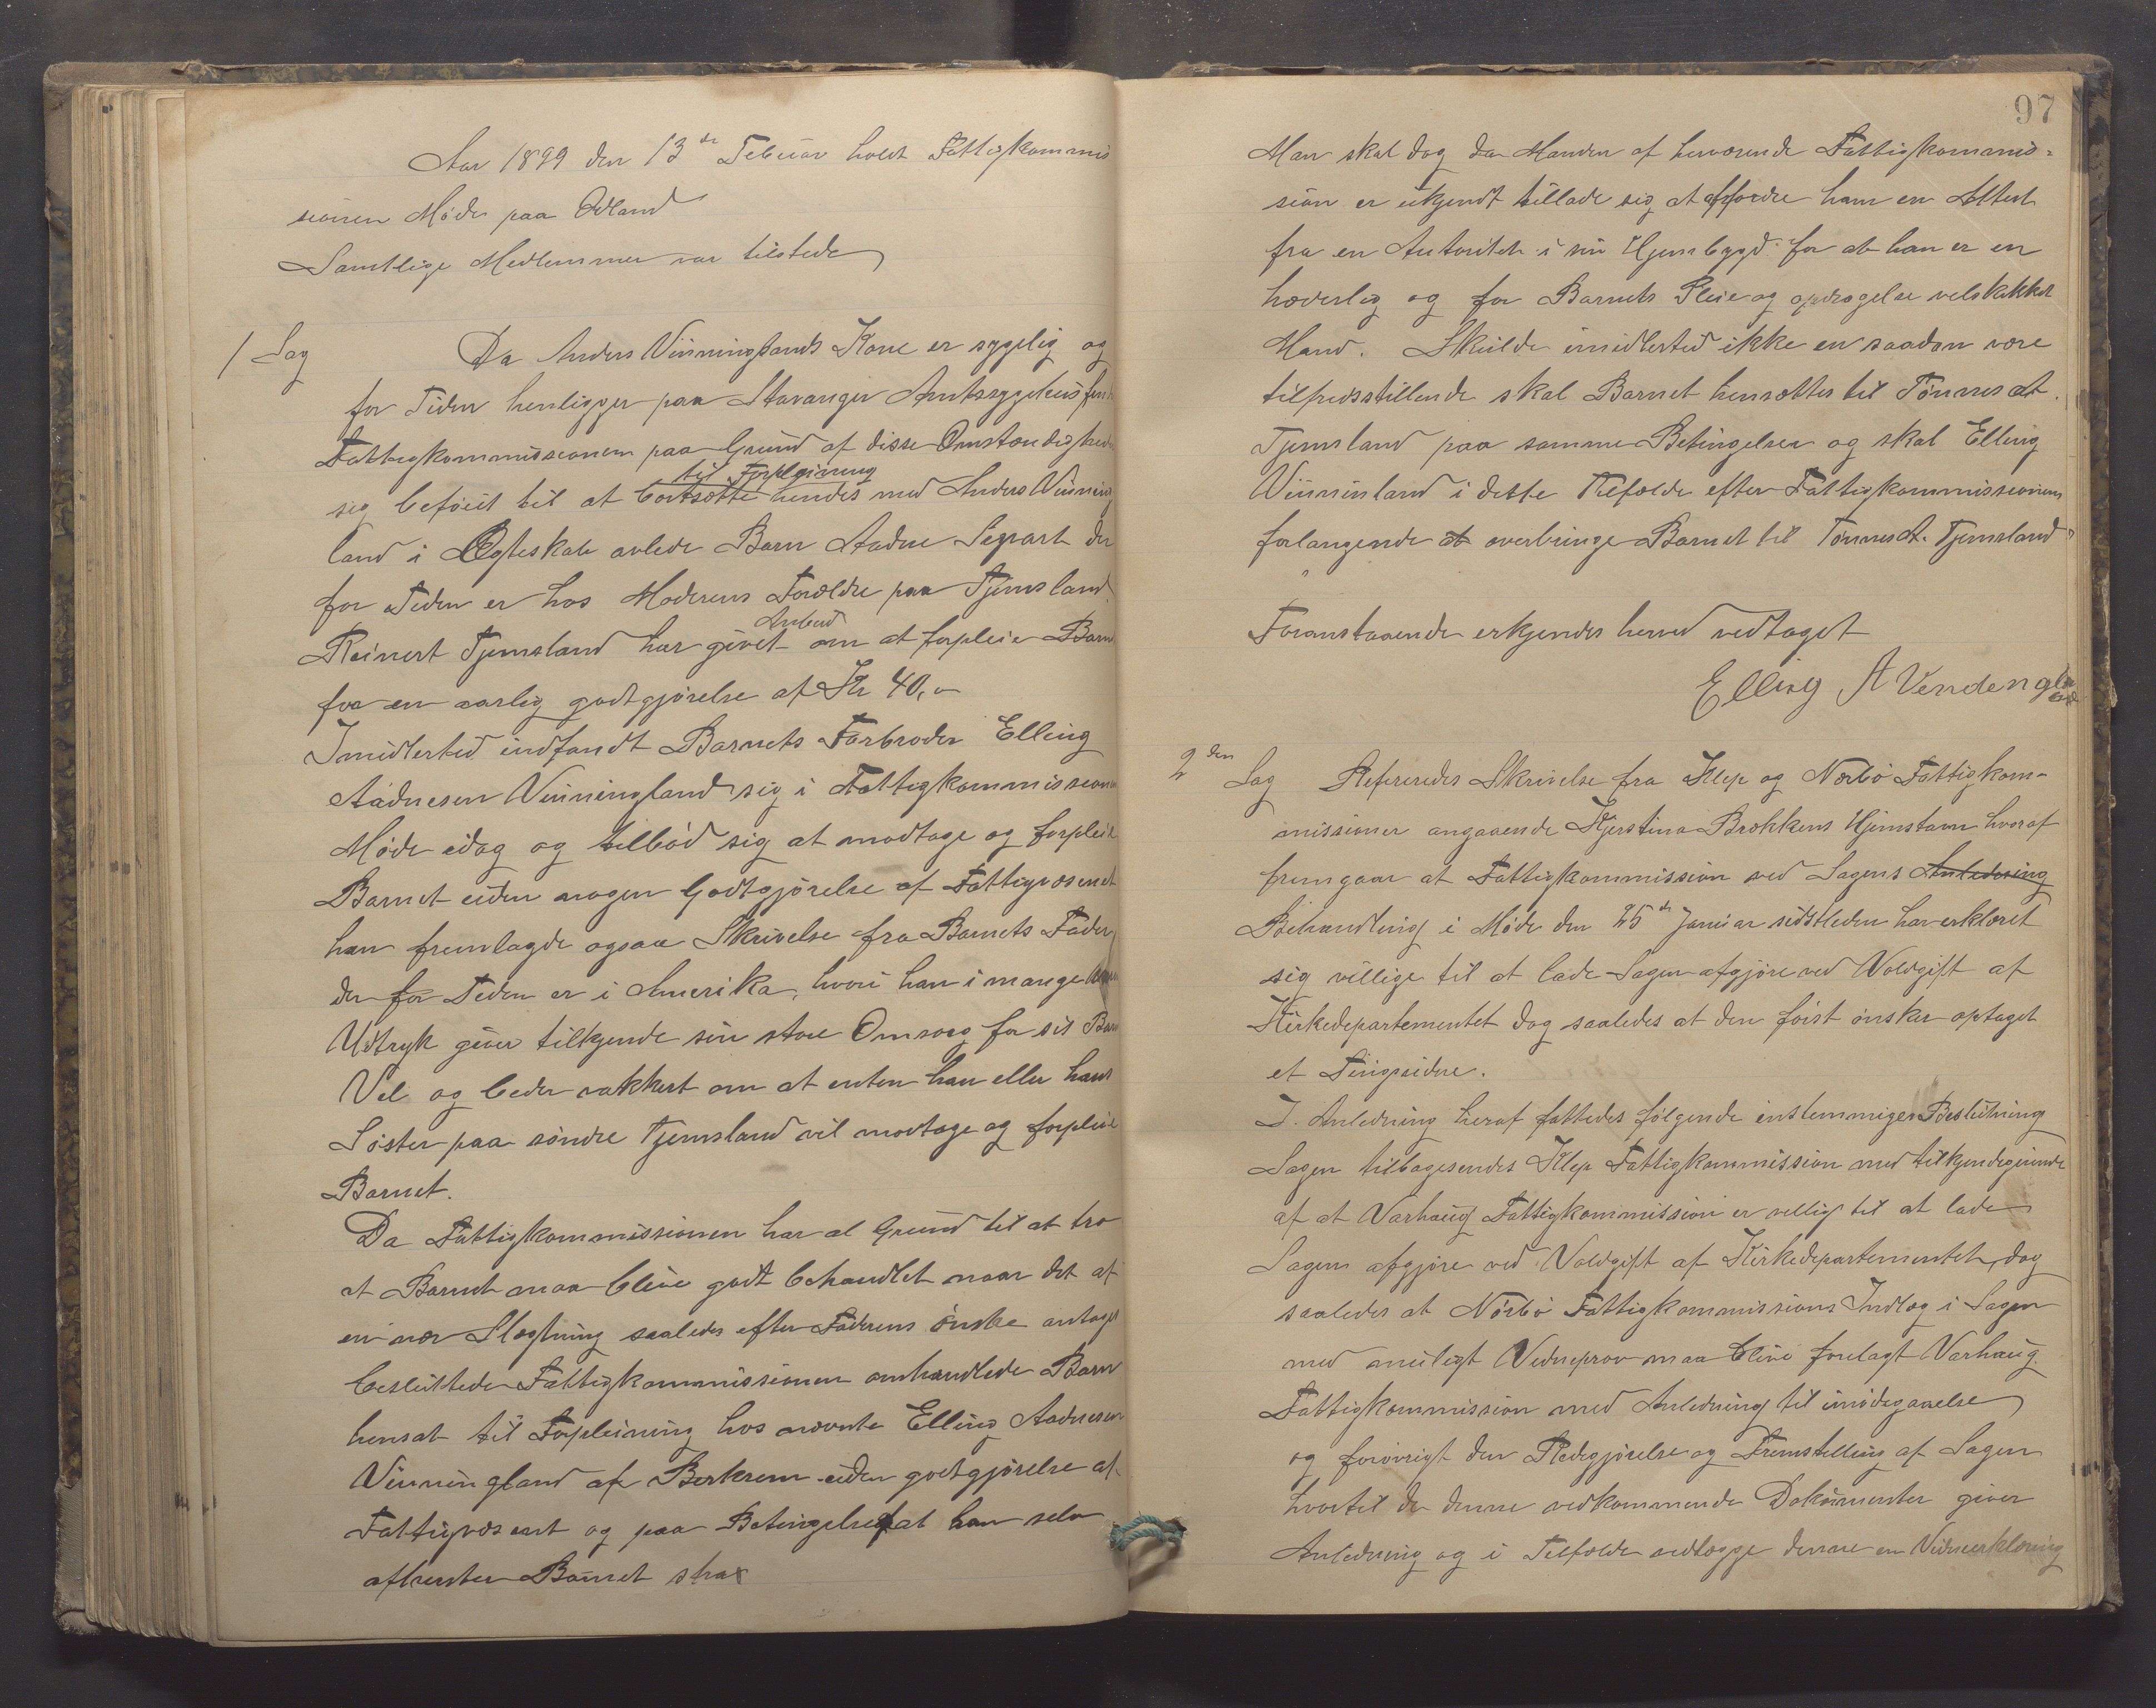 Aar 1899 den 13de Februar holdt Fattigkommis
sionen Møde paa Ødland
Samtlige Medlemmer var tilstede
1 Sag Da Anders Vinninglands Kone er sygelig og
for Tiden henligger paa Stavanger Amtssygehus finder
Fattigkommissionen paa Grund af disse Omstændighed
til Forpleining
sig beføiet til at bortsætte hendes med Anders Vinning
land i Ægteskab avlede Barn Aadne Segvart der
for Tiden er hos Moderens Forældre paa Tjemsland.
Anbud
Reinert Tjemsland har givet om at forpleie Barn
for en aarlig godtgjørelse af Kr 40,00
Imidlertid indfandt Barnets Farbroder Elling
Aadnesen Vinningland sig i Fattigkommissionen
Møde idag og tilbød sig at modtage og forpleie
Barnet uden nogen Godtgjørelse af Fattigvæsenet
han fremlagde ogsaa Skrivelse fra Barnets Fader,
der for Tiden er i Amerika, hvori han i mange
Udtryk giver tilkjende sin store Omsorg for sit Barn
Vel og beder vakkert om at enten han eller hans
Søster paa søndre Tjemsland vil modtage og forpleie
Barnet.
Da Fattigkommissionen har al Grund til at tro
at Barnet maa blive godt behandlet naar det af
en nær Slægtning saaledes efter Faderens ønske antages
besluttede Fattigkommissionen omhandlede Barn
hensat til Forpleining hos nævnte Elling Aadnesen
Vinningland af Birkrem uden godtgjørelse af
Fattigvæsenet og paa Betingelse at han selv
afhenter Barnet strax
97
Man skal dog da Manden af herværende Fattigkommis-
sion er ukjendt tillade sig at affordre ham en Attest
fra en Autoritet i sin Hjembygd for at han er en
hæderlig og for Barnets Pleie og opdragelse velskikket
Mand. Skulde imidlertid ikke en saadan være
tilfredsstillende skal Barnet hensættes til Tønnes A.
Tjemsland paa samme Betingelser og skal Elling
Vinninland i dette Tilfælde efter Fattigkommissionens
forlangende at overbringe Barnet til Tønnes A. Tjemsland"
Foranstaaende erkjendes herved vedtaget
Elling A Vendengland
2den Sag Refereredes Skrivelse fra Klep og Nærbø Fattigkom-
missioner angaaende Kjerstina Brækkens Hjemstavn hvoraf
fremgaar at Fattigkommission ved Sagens Anledning
Behandling i Møde den 25de Januar sidstleden har erklæret
sig villige til at lade Sagen afgjøre ved Voldgift af
Kirkedepartementet dog saaledes at den først ønsker optaget
et Tingsvidne.
I Anledning heraf fattedes følgende enstemmige Beslutning
Sagen tilbagesendes Klep Fattigkommission med tilkjendegivende
af at Varhaug Fattigkommission er villig til at lade
Sagen afgjøre ved Voldgift af Kirkedepartementet, dog
saaledes at Nærbø Fattigkommissions Indlæg i Sagen
med muligt Vidneprov maa blive forelagt Varhaug
Fattigkommission med Anledning til imødegaaelse
og forøvrigt den Redegjørelse og Fremstilling af Sagen
hvortil de denne vedkommende Dokumenter giver
Anledning og i Tilfælde vedlægge denne en Vidneerklæring